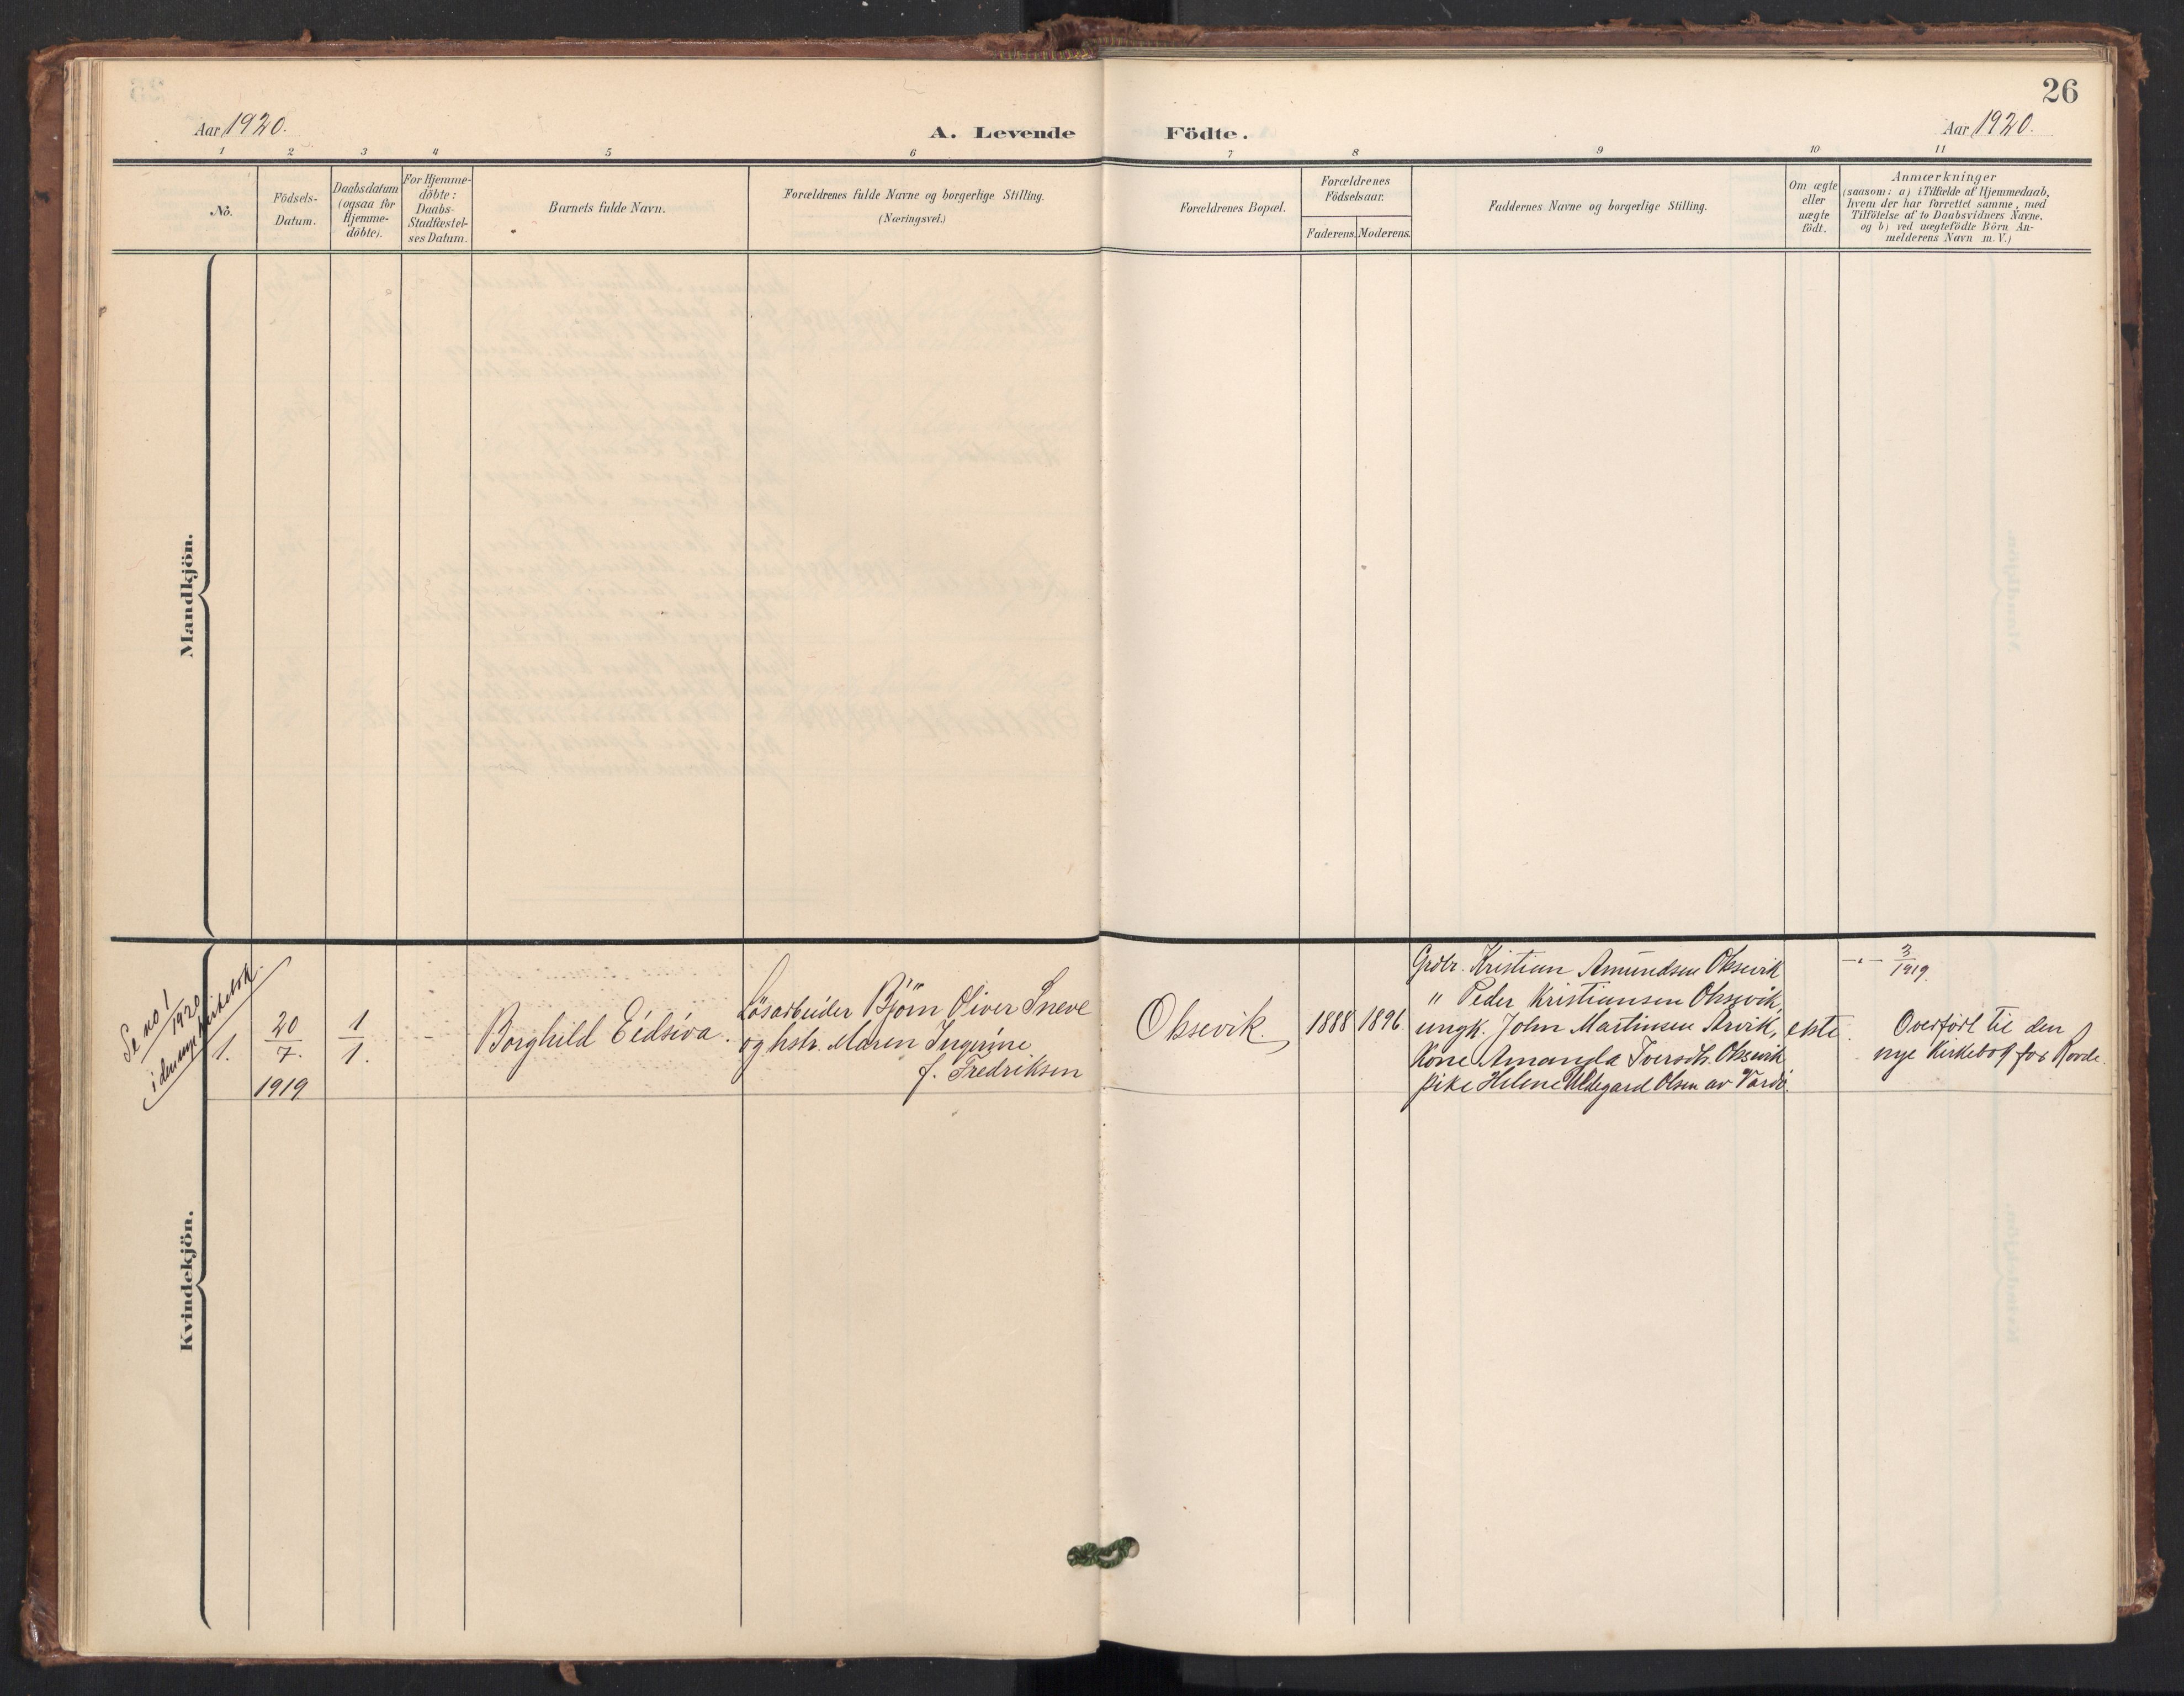 26
Aar 1920.
A. Levende Födte.
Aar 1920.
1 2 3 4 5 6 7 8 9 10 11
No.
Födsels-
Datum.
Daabsdatum
(ogsaa for
Hjemme-
döbte).
For Hjemme-
döbte:
Daabs-
Stadfæstel-
ses Datum.
Barnets fulde Navn.
Forældrenes fulde Navne og borgerlige Stilling.
(Næringsvei.)
Forældrenes Bopæl.
Forældrenes
Födselsaar.
Faderens. Moderens.
Faddernes Navne og borgerlige Stilling.
Om ægte
eller
uægte
födt.
Anmærkninger
(saasom: a) i Tilfælde af Hjemmedaab,
hvem der har forrettet samme, med
Tilföielse af to Daabsvidners Navne.
og b) ved uægtefödte Börn An-
melderens Navn m. V.)
Mandkjön.
Kvindekjön.
Se no 1
1920
i den nye kirkebok.
1.
20
7.
1919
1
1.
Borghild Eidsiva.
Løsarbeider Bjørn Oliver Sneve
og hstr. Maren Ingerine
f. Fredriksen
Oksevik.
1888 1896.
Grdbr. Kristian Amundsen Oksevik
" Peder Kristiansen Oksevik,
ungk. John Martinsen Arvik,
Kone Amanda Iversdtr. Oksevik
pike Helene Hildegard Olsen av Vardø.
ekte.
-"- 3
1919.
Overført til den
nye Kirkebok for Rovde.